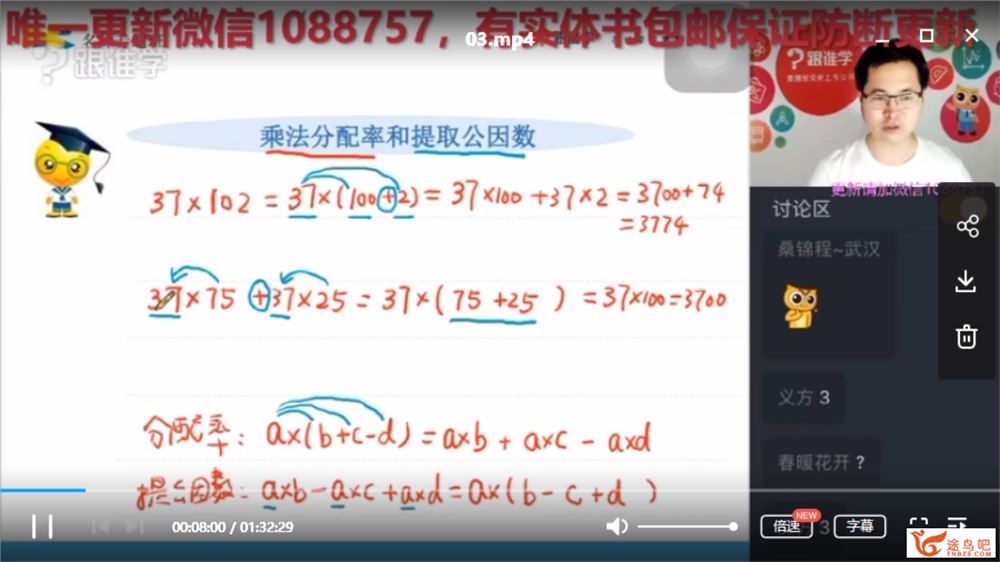 唯一更新微信1088757，有实体书包邮保证防断更新
03.mp4
跟谁学
跟谁学
乘法分配率和提取公因数
37×102 = 37×(100+2) = 37×100 +37×2 = 3700+74
=3774
37×75 +37×25 = 37×( 75 +25 ) =37×100=3700
分配率: a×(b+c-d)=a×b + a×c - a×d
提公因数: a×b-a×c+a×d=a×(b-c+d)
更新请加微信1088757
讨论区
桑锦程~武汉
义方 3
春暖花开 ?
3
00:08:00 / 01:32:29
倍速
NEW
字幕
途鸟吧
TNBZS.COM